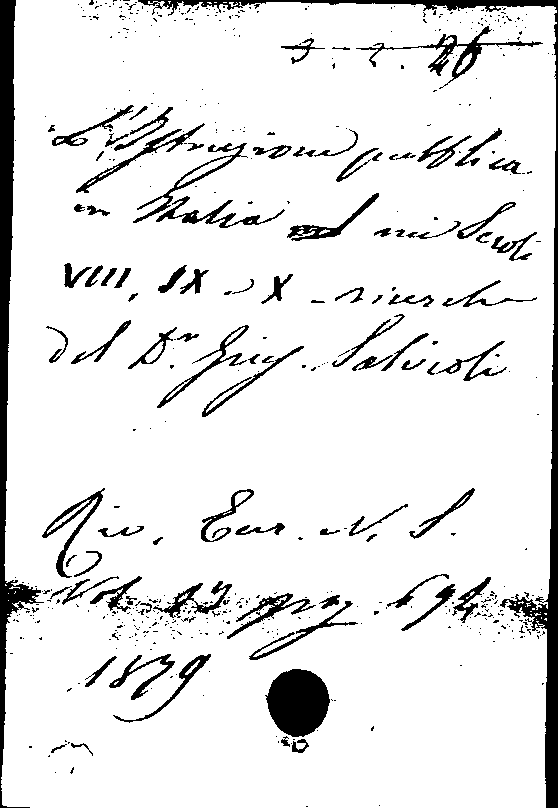 3. 2. 26
L'Istruzione pubblica
in Italia nei Secoli
VIII, IX e X - ricerche
del Dr. Gius. Salvioli
Riv. Eur. N. S.
Vol. 13 pag. 694
1879